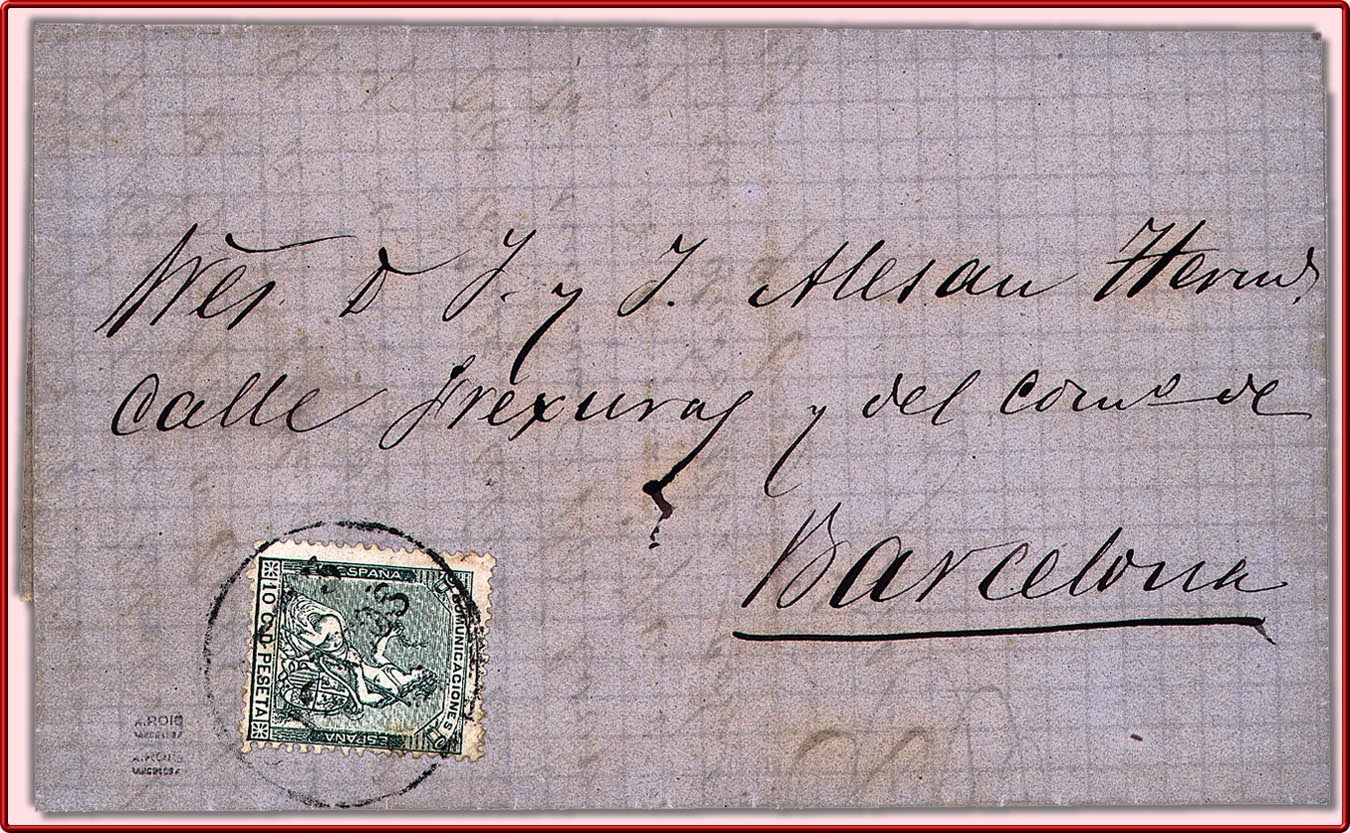 Sres. D J. y J. Alesan Herms.
Calle Frexuras y del come. de
Barcelona
ESPAÑA
COMUNICACIONES
10 C. D PESETA
ESPAÑA
A.ROIG